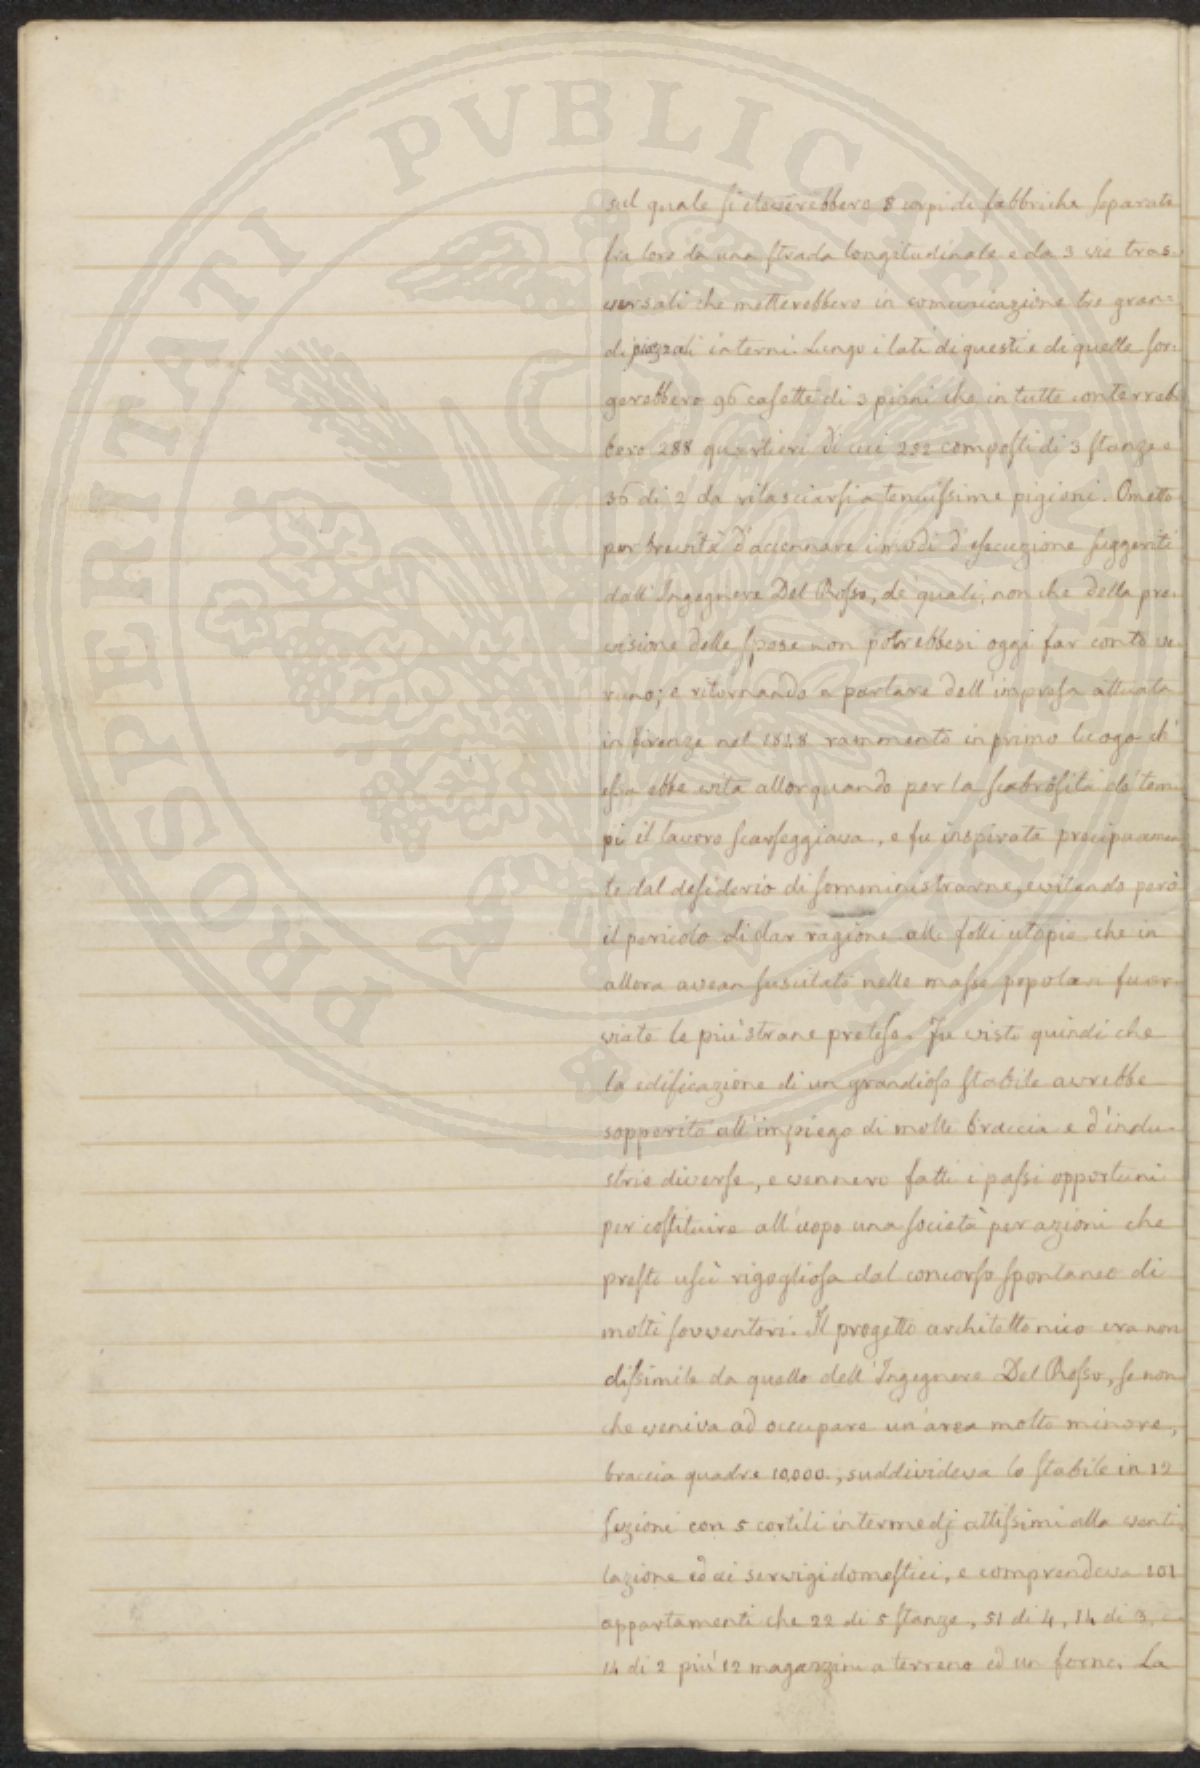 PROSPERITATI PVBLICAE AVGENDAE
sul quale si eleverebbero 8 corpi di fabbriche separate
fra loro da una strada longitudinale e da 3 vie tras-
versali che metterebbero in comunicazione tre gran=
di piazzali interni. Lungo i lati di questi e di quelle sor-
gerebbero 96 casette di 3 piani che in tutte conterreb-
bero 288 quartieri di cui 252 composti di 3 stanze e
36 di 2 da rilasciarsi a tenuissime pigioni. Ometto
per brevità d'accennare i modi d'esecuzione suggeriti
dall'Ingegnere Del Rosso, de' quali, non che della pre-
visione delle spese non potrebbesi oggi far conto ve-
runo; e ritornando a parlare dell'impresa attuata
in Firenze nel 1848 rammento in primo luogo ch'
essa ebbe vita allorquando per la scabrosità de' tem-
pi il lavoro scarseggiava, e fu inspirata precipuamen
te dal desiderio di somministrarne, evitando però
il pericolo di dar ragione alle folli utopie che in
allora avean suscitate nelle masse popolari fuor-
viate le più strane pretese. Fu visto quindi che
la edificazione di un grandioso stabile avrebbe
sopperito all'impiego di molte braccia e d'indu-
strie diverse, e vennero fatti i passi opportuni
per costituire all'uopo una società per azioni che
presto uscì rigogliosa dal concorso spontaneo di
molti sovventori. Il progetto architettonico era non
dissimile da quello dell'Ingegnere Del Rosso, se non
che veniva ad occupare un'area molto minore,
braccia quadre 10,000., suddivideva lo stabile in 12
sezioni con 5 cortili intermedj attissimi alla venti
lazione ed ai servigi domestici, e comprendeva 101
appartamenti che 22 di 5 stanze, 51 di 4, 14 di 3, e
14 di 2 più 12 magazzini a terreno ed un forno. La